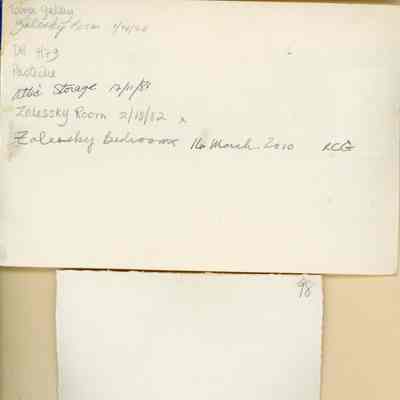 Gallery
Zalessky Room
DR 4/79
Pastiche
Attic Storage 12/11/81
Zalessky Room 2/18/82 x
Zalessky bedroom 16 March. 2010 RCG
98